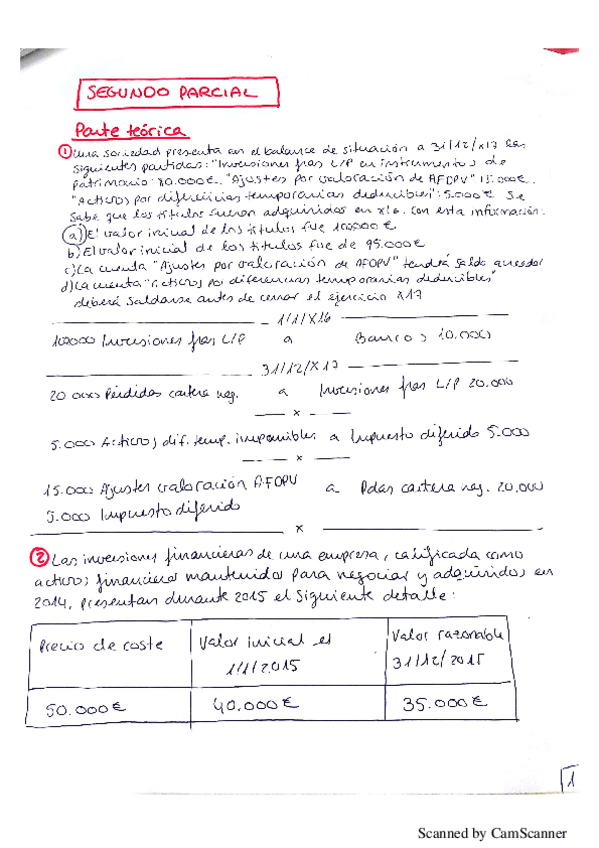 SEGUNDO PARCIAL
Parte teórica
① Una sociedad presenta en el balance de situación a 31/12/x17 las
siguientes partidas: "Inversiones fras L/P en instrumentos de
patrimonio: 80.000€. "Ajustes por valoración de AFDPV" 15.000€.
"Activos por diferencias temporarias deducibles": 5.000€ Se
sabe que los títulos fueron adquiridos en x16. Con esta información:
a) El valor inicial de los títulos fue 100000€
b) El valor inicial de los títulos fue de 95.000€
c) La cuenta "Ajustes por valoración de AFDPV" tendrá saldo acreedor
d) La cuenta "activos por diferencias temporarias deducibles"
deberá saldarse antes de cerrar el ejercicio x17
1/1/X16
100000 Inversiones fras L/P a Bancos 10.000
31/12/X17
20.000 Pérdidas cartera neg. a Inversiones fras L/P 20.000
x
5.000 Activos dif. temp. imponibles a Impuesto diferido 5.000
x
15.000 Ajustes valoración AFDPV a Pdas cartera neg. 20.000
5.000 Impuesto diferido
x
② Las inversiones financieras de una empresa, calificada como
activos financieros mantenidos para negociar y adquiridos en
2014, presentan durante 2015 el siguiente detalle:
Precio de coste Valor inicial el Valor razonable
1/1/2015 31/12/2015
50.000€ 40.000€ 35.000€
1
Scanned by CamScanner